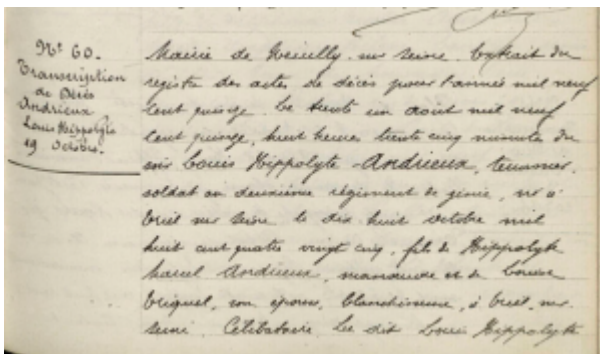 N° 60.
Transcription
de Décès
Andrieux
Louis Hippolyte
19 Octobre.
Mairie de Neuilly sur Seine. Extrait du
registre des actes de décès pour l'année mil neuf
cent quinze. Le trente un août mil neuf
cent quinze, huit heures trente cinq minutes du
soir Louis Hippolyte Andrieux,
soldat au deuxième régiment de génie, né à
Triel sur Seine le dix huit octobre mil
huit cent quatre vingt cinq, fils de Hippolyte
Marcel Andrieux, et de Louise
Briquel, son épouse, blanchisseuse, à Triel sur
Seine. Célibataire. Le dit Louis Hippolyte